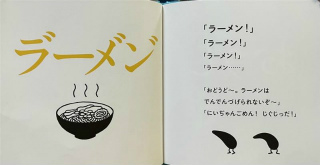 ラーメン
「ラーメン！」
「ラーメン！」
「ラーメン！」
「ラーメン……」
「おどうど〜。ラーメンは
でんでんつづけられないぞ〜」
「にいぢゃんごめん！ じぐじっだ！」